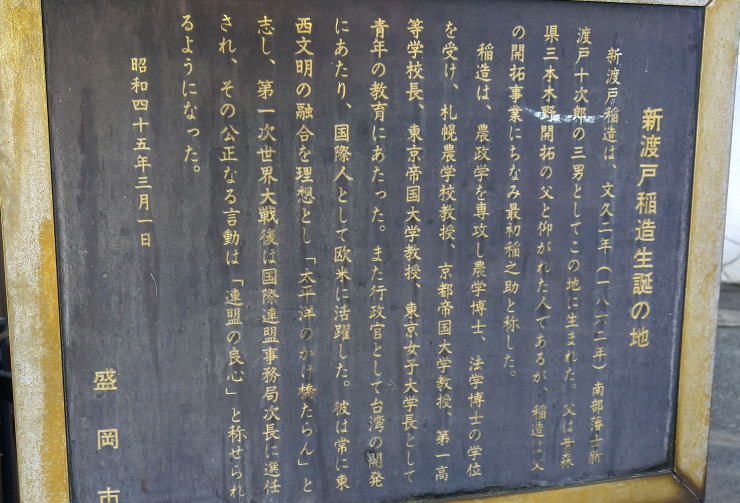 新渡戸稲造生誕の地
新渡戸稲造は、文久二年（一八六二年）南部藩士新
渡戸十次郎の三男としてこの地に生まれた。父は青森
県三本木野開拓の父と仰がれた人であるが、稲造は父
の開拓事業にちなみ最初稲之助と称した。
稲造は、農政学を専攻し農学博士、法学博士の学位
を受け、札幌農学校教授、京都帝国大学教授、第一高
等学校長、東京帝国大学教授、東京女子大学長として
青年の教育にあたった。また行政官として台湾の開発
にあたり、国際人として欧米に活躍した。彼は常に東
西文明の融合を理想とし「太平洋のかけ橋たらん」と
志し、第一次世界大戦後は国際連盟事務局次長に選任
され、その公正なる言動は「連盟の良心」と称せられ
るようになった。
昭和四十五年三月一日
盛岡市